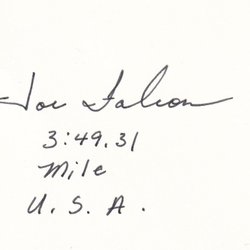 Joe Falcon
3:49.31
Mile
U. S. A.